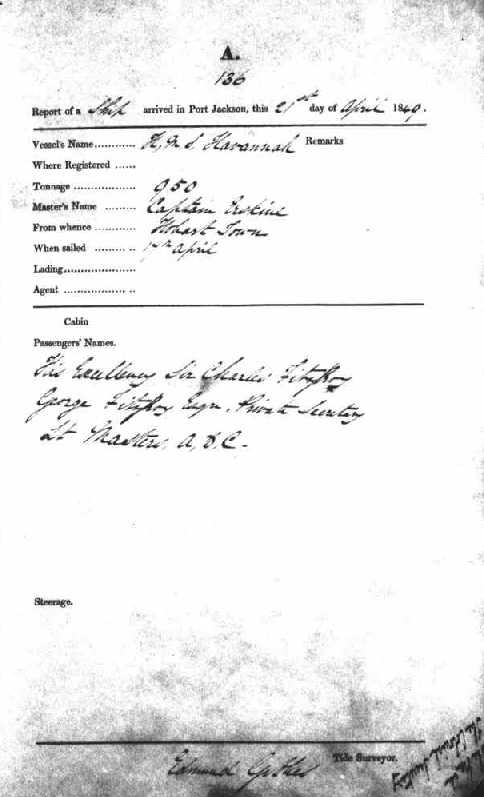 A.
136
Report of a Ship arrived in Port Jackson, this 21st day of April 1849.
Vessel's Name............ H, M S Havannah Remarks
Where Registered ......
Tonnage ................. 950
Master's Name ......... Captain Erskine
From whence ............ Hobart Town
When sailed ............ 17th April
Lading.....................
Agent .....................
Cabin
Passengers' Names.
His Excellency Sir Charles FitzRoy
George FitzRoy Esqre, Private Secretary
Lt Masters, A, D C -
Steerage.
Edmund Tide Surveyor.